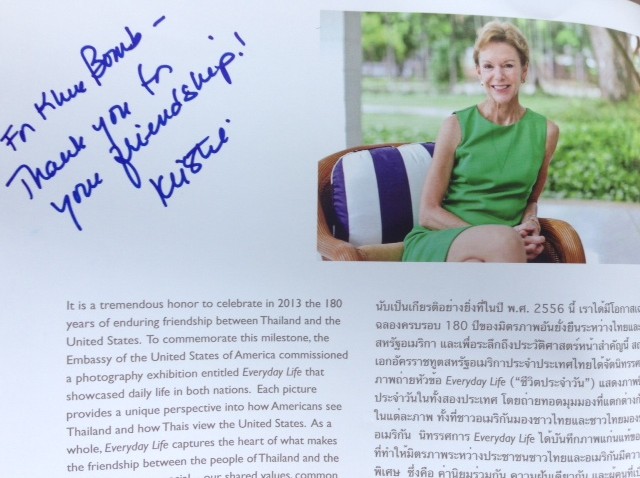 For Khun Bomb –
Thank you for
your friendship!
Kristie
It is a tremendous honor to celebrate in 2013 the 180
years of enduring friendship between Thailand and the
United States. To commemorate this milestone, the
Embassy of the United States of America commissioned
a photography exhibition entitled Everyday Life that
showcased daily life in both nations. Each picture
provides a unique perspective into how Americans see
Thailand and how Thais view the United States. As a
whole, Everyday Life captures the heart of what makes
the friendship between the people of Thailand and the
our shared values, common
นับเป็นเกียรติอย่างยิ่งที่ในปี พ.ศ. 2556 นี้ เราได้มีโอกาส
ฉลองครบรอบ 180 ปีของมิตรภาพอันยั่งยืนระหว่างไทยและ
สหรัฐอเมริกา และเพื่อระลึกถึงประวัติศาสตร์หน้าสำคัญนี้
เอกอัครราชทูตสหรัฐอเมริกาประจำประเทศไทยได้จัดนิทรรศ
ภาพถ่ายหัวข้อ Everyday Life (“ชีวิตประจำวัน”) แสดงภาพ
ประจำวันในทั้งสองประเทศ โดยถ่ายทอดมุมมองที่แตกต่าง
ในแต่ละภาพ ทั้งที่ชาวอเมริกันมองชาวไทยและชาวไทยมอง
อเมริกัน นิทรรศการ Everyday Life ได้บันทึกภาพแก่นแท้ของ
ที่ทำให้มิตรภาพระหว่างประชาชนชาวไทยและอเมริกันมีความ
พิเศษ ซึ่งคือ ค่านิยมร่วมกัน ความ